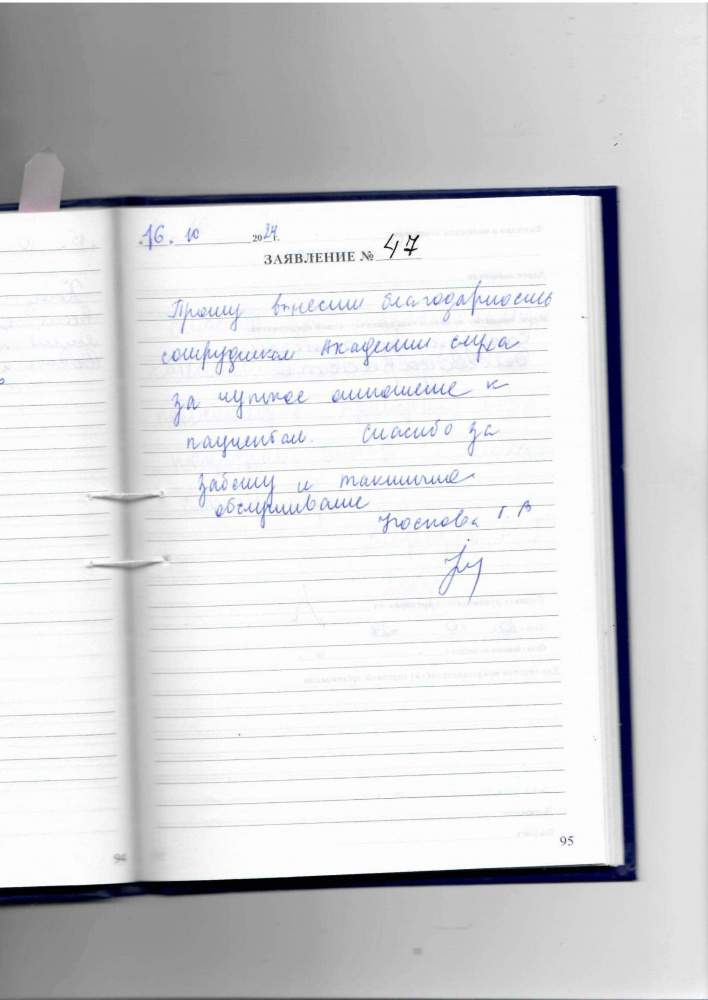 16. 10 2024 г.
ЗАЯВЛЕНИЕ № 47
Прошу вынести благодарность
сотрудникам Академии слуха
за чуткое отношение к
пациентам. Спасибо за
заботу и тактичное
обслуживание
Г. В
94
95